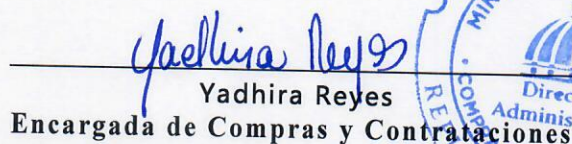 Yadhira Reyes
Yadhira Reyes
Encargada de Compras y Contrataciones
Direc
Adminis